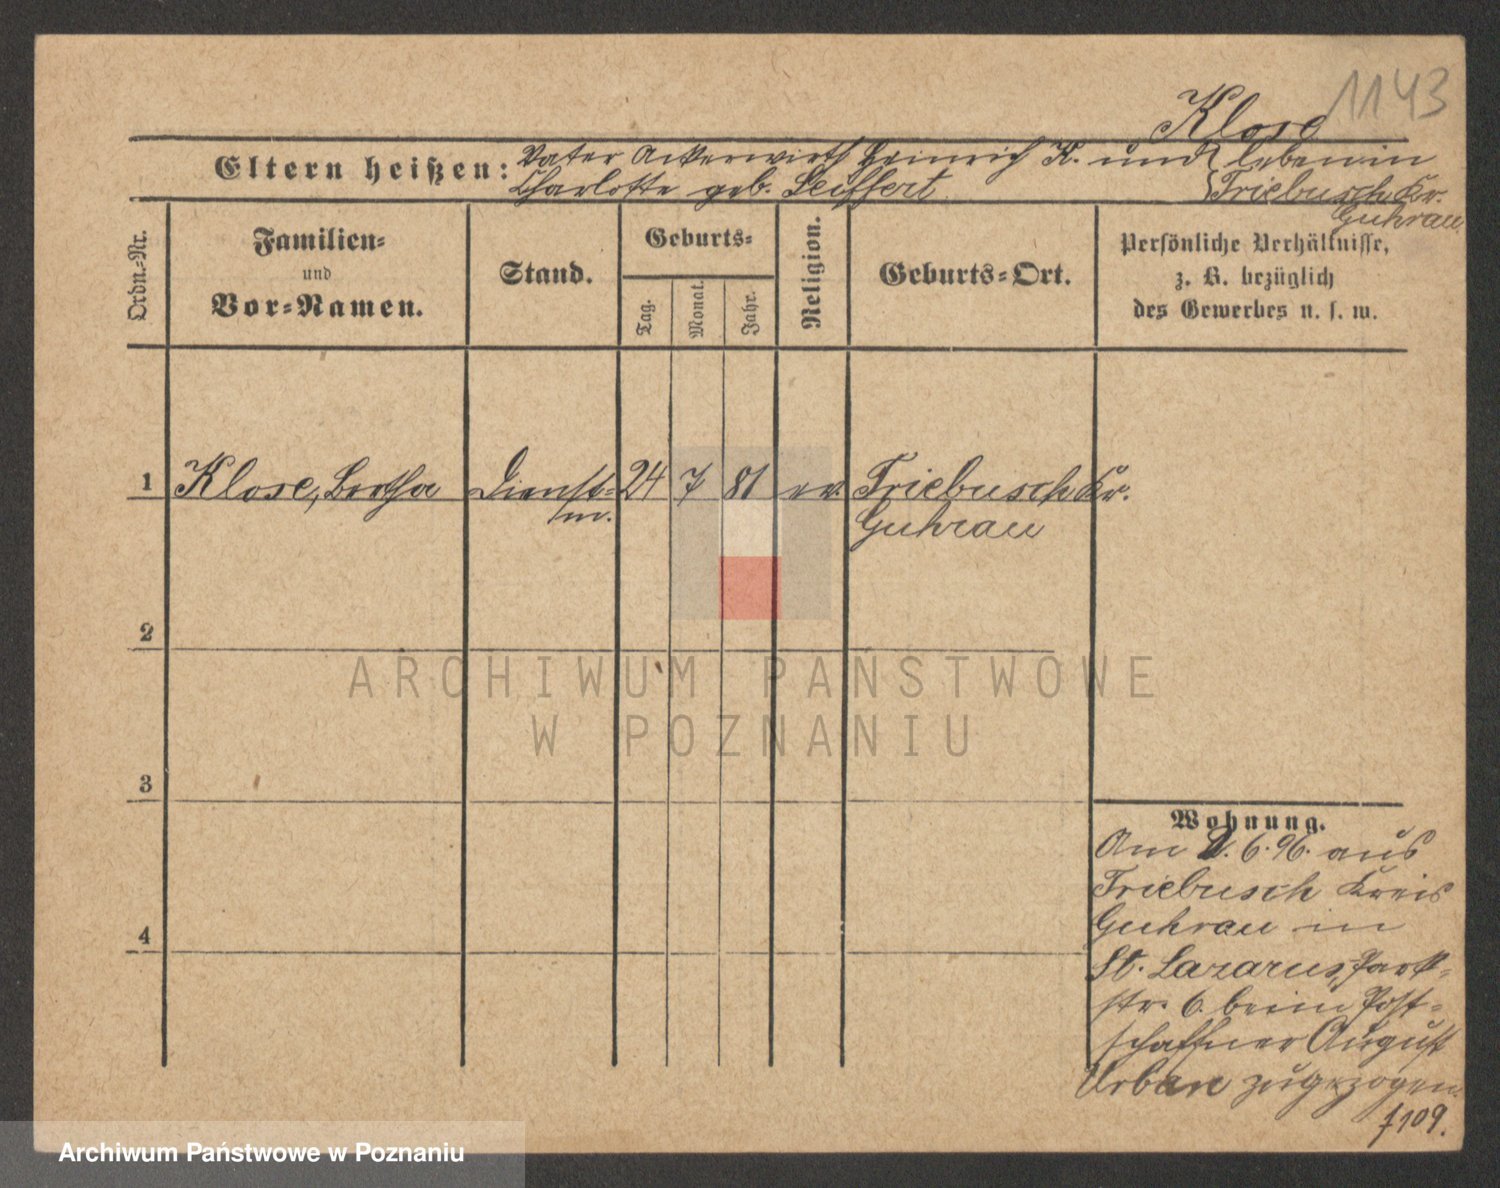 1143
Klose
Eltern heißen: Vater Ackerwirth Heinrich K. und leben in
Charlotte geb. Seiffert Triebusch Kr.
Guhrau
Ordn.-Nr.
Familien-
und
Vor-Namen.
Stand.
Geburts-
Tag.
Monat.
Jahr.
Religion.
Geburts-Ort.
Persönliche Verhältnisse,
z. B. bezüglich
des Gewerbes u. s. w.
1 Klose, Bertha Dienst- 24 7 81 ev. Triebusch Kr.
m. Guhrau
2
ARCHIWUM PAŃSTWOWE
W POZNANIU
3
Wohnung.
Am 2. 6. 96. aus
Triebusch Kreis
Guhrau in
4
St. Lazarus, Park-
str. 6. beim Post-
schaffner August
Urban zugezogen.
f 109.
Archiwum Państwowe w Poznaniu